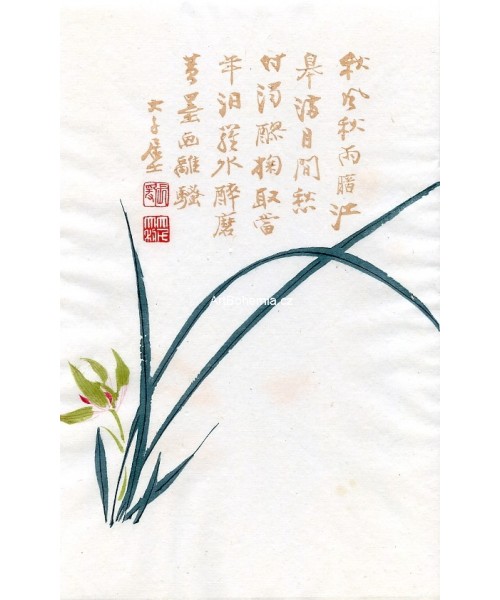 秋風秋雨暗江
皋滿目間愁
付濁醪掬取當
年汨羅水醉磨
墨画離騷
大千居士
ArtBohemia.cz